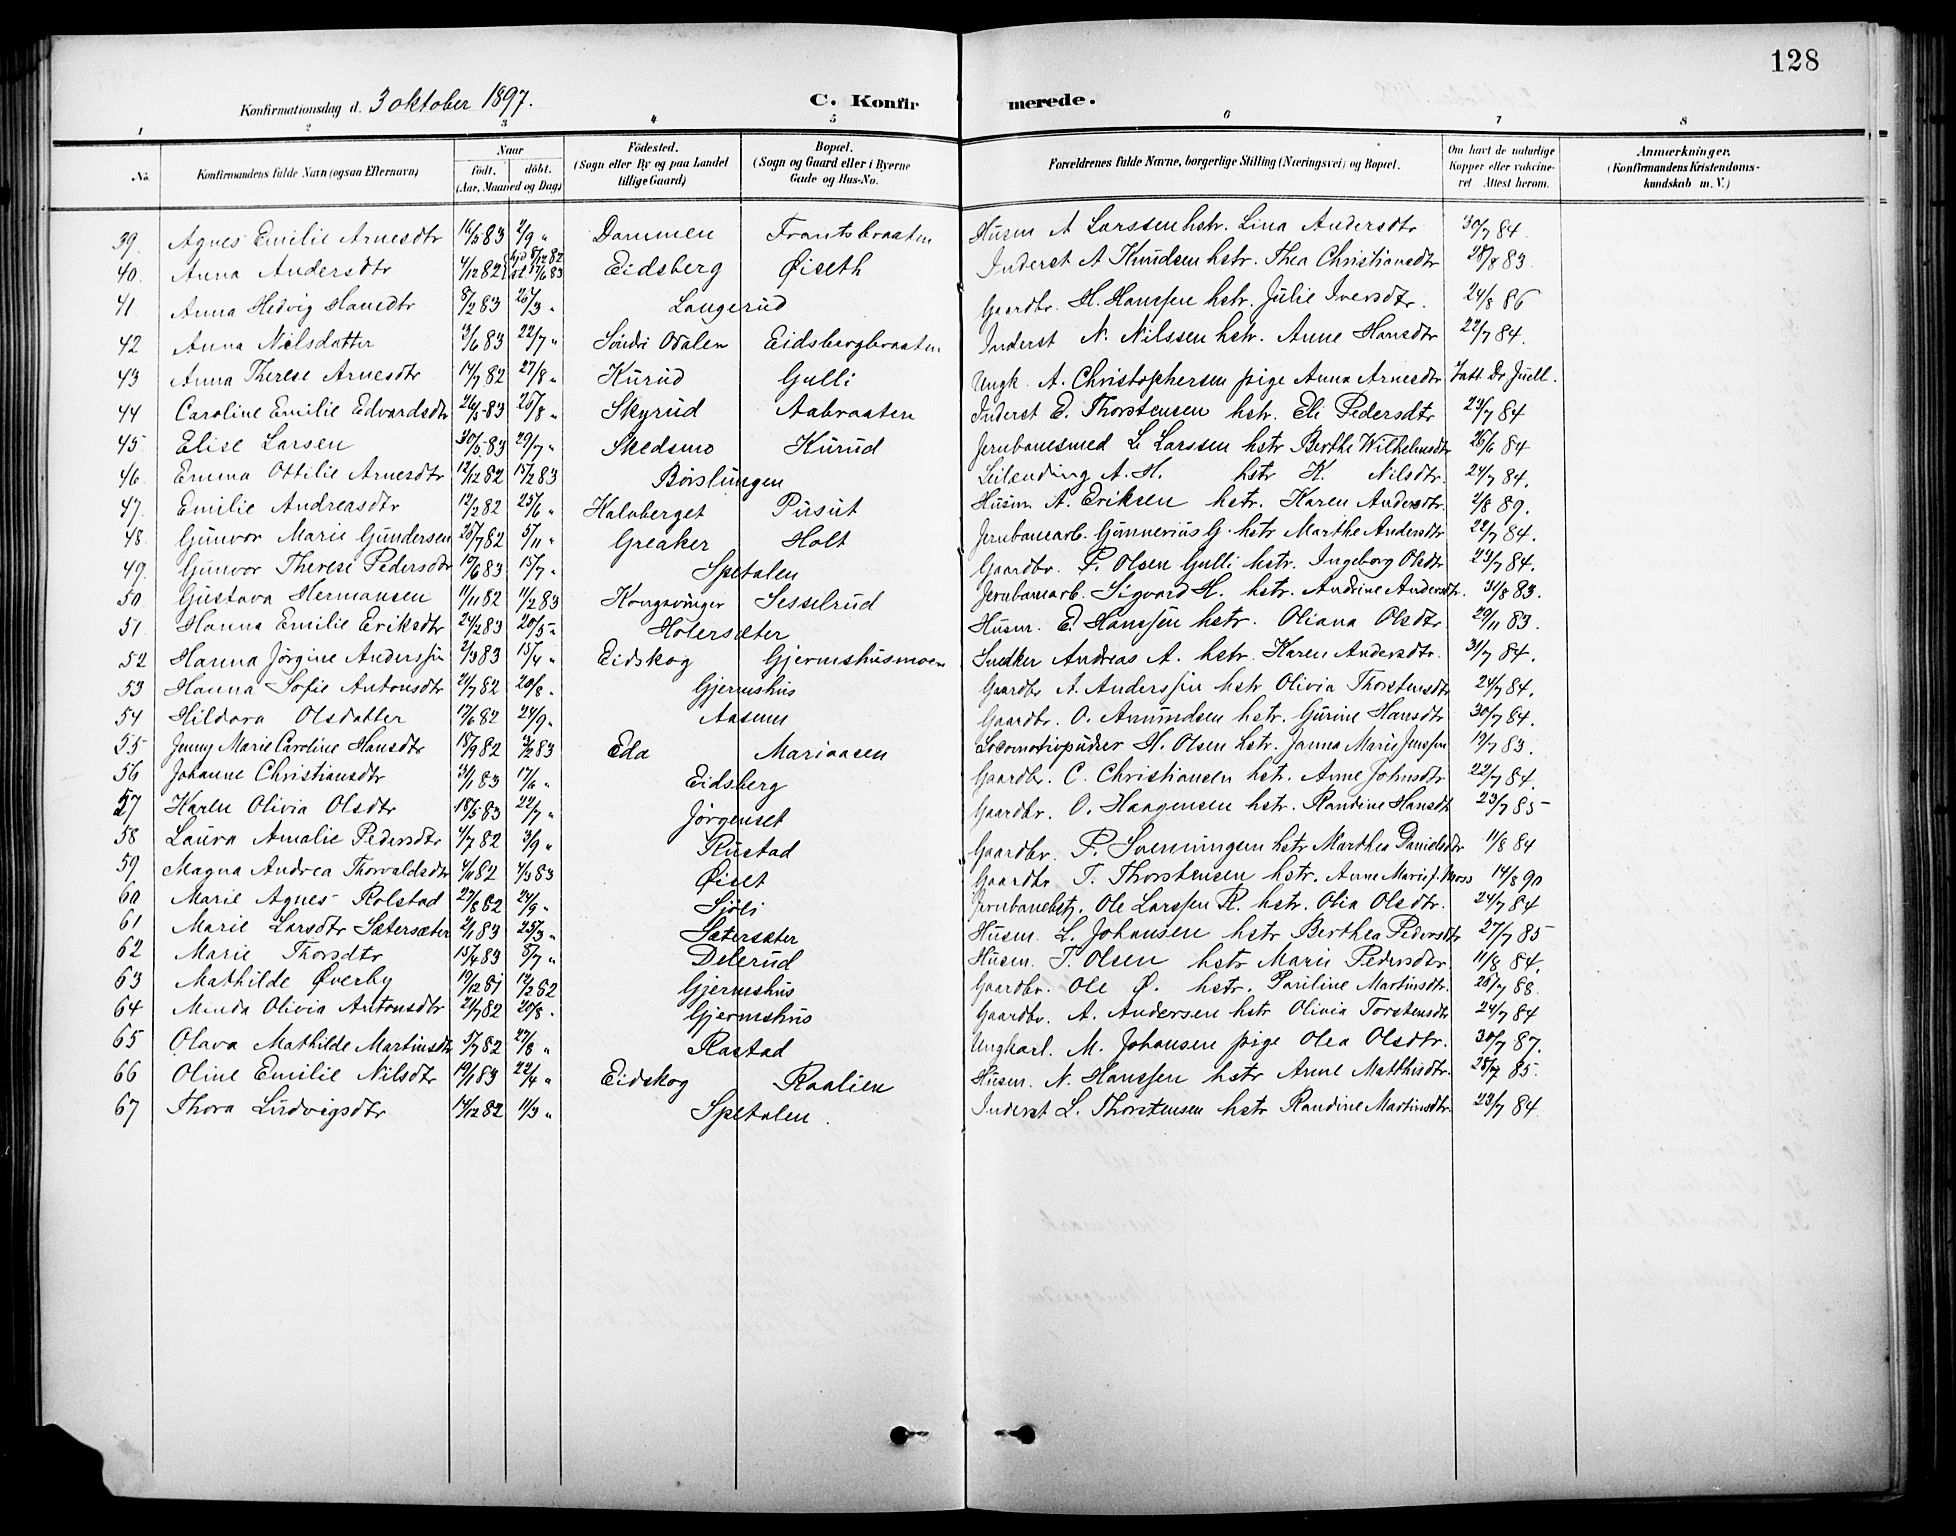 128
Konfirmationsdag d. 3 oktober 1897. C. Konfirmerede.
1 2 3 4 5 6 7 8
No. Konfirmandens fulde Navn (ogsaa Efternavn) Naar født. døbt. (Aar, Maaned og Dag) Fødested. (Sogn eller By og paa Landet tillige Gaard) Bopæl. (Sogn og Gaard eller i Byerne Gade og Hus-No. Forældrenes fulde Navne, borgerlige Stilling (Næringsvei) og Bopæl. Om havt de naturlige Kopper eller vakcineret Attest herom. Anmærkninger, (Konfirmandens Kristendomskundskab m. V.)
39. Agnes Emilie Arnesdtr 16/5 83 2/9 " Dammen Frantsbraaten Husm A Larssen hstr. Lina Andersdtr 30/7 84.
40. Anna Andersdtr 4/12 82 hjd 8/12 82 st 17/6 83 Eidsberg Øiseth Inderst A Knudsen hstr. Thea Christiansdtr 28/8 83.
41 Anna Hedvig Hansdtr 8/2 83 26/3 " Langerud Gaardbr. H. Hanssen hstr. Julie Iversdtr. 24/8 86
42 Anna Nilsdatter 3/6 83 22/7 " Søndre Odalen Eidsbergbraaten Inderst N. Nilssen hstr. Anne Hansdtr 22/7 84.
43 Anna Therese Arnesdtr 14/7 82 27/8 " Kurud Gulli Ungk. A. Christophersen pige Anna Arnesdtr Iatt. Dr Juell.
44 Caroline Emilie Edvardsdtr 26/5 83 26/8 " Skyrud Aabraaten Inderst E. Thorstensen hstr. Eli Pedersdtr 24/7 84
45 Elise Larsen 30/5 83 29/7 " Skedsmo Kurud Jernbanesmed L. Larssen hstr Berthe Wilhelmsdtr 26/6 84
46. Emma Ottilie Arnesdtr 12/12 82 15/2 83 Børslungen Leilending A. H. hstr K. Nilsdtr. 24/7 84.
47. Emilie Andreasdtr 12/3 82 25/6 " Halvberget Pusut Husm. A. Eriksen hstr. Karen Andersdtr. 2/8 89.
48. Gunvor Marie Gundersen 26/7 82 5/11 " Greaker Holt Jernbanearb. Gunnerius G. hstr Marthe Andersdtr 22/7 84.
49. Gunvor Therese Pedersdtr 17/6 83 15/7 " Spetalen Gaardbr. P. Olsen Gulli hstr. Ingeborg Olsdtr 23/7 84.
50. Gustava Hermansen 11/11 82 11/2 83 Kongsvinger Sesselrud Jernbanearb. Sigvard H. hstr. Andrine Andersdtr. 31/8 83.
51. Hanna Emilie Eriksdtr 24/2 83 20/5 " Holersæter Husm. E. Hanssen hstr. Oliana Olsdtr. 29/11 83.
52 Hanna Jørgine Anderssen 2/3 83 15/4 " Eidskog Gjermshusmoen Snedker Andreas A. hstr. Karen Andersdtr. 31/7 84.
53 Hanna Sofie Antonsdtr 21/7 82 20/8 " Gjermshus Gaardbr A. Anderssen hstr Olivia Thorstensdtr 24/7 84.
54 Hildora Olsdatter 17/6 82 24/9 " Aasum Gaardbr. O. Amundsen hstr. Gurine Hansdtr 30/7 84.
55 Jenny Marie Caroline Hansdtr 18/9 82 4/2 83 Eda Mariaasen Locomotivpudser H. Olsen hstr. Janna Marie Jenssen 19/7 83.
56 Johanne Christiansdtr 31/1 83 17/6 " Eidsberg Gaardbr. C. Christiansen hstr. Anne Johnsdtr 22/7 84.
57 Karen Olivia Olsdtr 18/5 83 22/7 " Jørgenset Gaardbr. O. Haagensen hstr. Randine Hansdtr 23/7 85
58 Laura Amalie Pedersdtr 4/7 82 3/9 " Rustad Gaardbr. P. Svenningsen hstr Marthea Danielsdtr 11/8 84
59 Magna Andrea Thorvaldsdtr 4/11 82 4/3 83 Øiset Gaardbr T. Thorstensen hstr. Anne Marie J. Moss 14/8 90
60 Marie Agnes Rolstad 27/8 82 24/9 " Sjøli Jernbanebstj. Ole Larssen R. hstr. Olia Olsdtr. 24/7 84
61 Marie Larsdtr Sætersæter 2/1 83 25/3 " Sætersæter Husm. L. Johansen hstr Berthea Pedersdtr 27/7 85
62 Marie Thorsdtr 15/4 83 8/7 " Delerud Husm. T. Olsen hstr Marie Pedersdtr. 11/8 84.
63 Mathilde Øverby 19/12 81 12/2 82 Gjermshus Gaardbr. Ole Ø. hstr. Pauline Martinsdtr. 26/7 88.
64 Minda Olivia Antonsdtr 21/7 82 20/8 " Gjermshus Gaardbr. A. Andersen hstr Olivia Torstensdtr 24/7 84
65 Olava Mathilde Martinsdtr 5/7 82 27/8 " Rastad Ungkarl. M. Johansen pige Olea Olsdtr. 30/7 87.
66 Oline Emilie Nilsdtr 19/1 83 22/4 " Eidskog Raalien Husm. N. Hanssen hstr Anne Mathisdtr. 28/7 85.
67 Thora Ludvigsdtr 14/12 82 11/3 " Spetalen. Inderst L. Thorstensen hstr Randine Martinsdtr. 23/7 84.